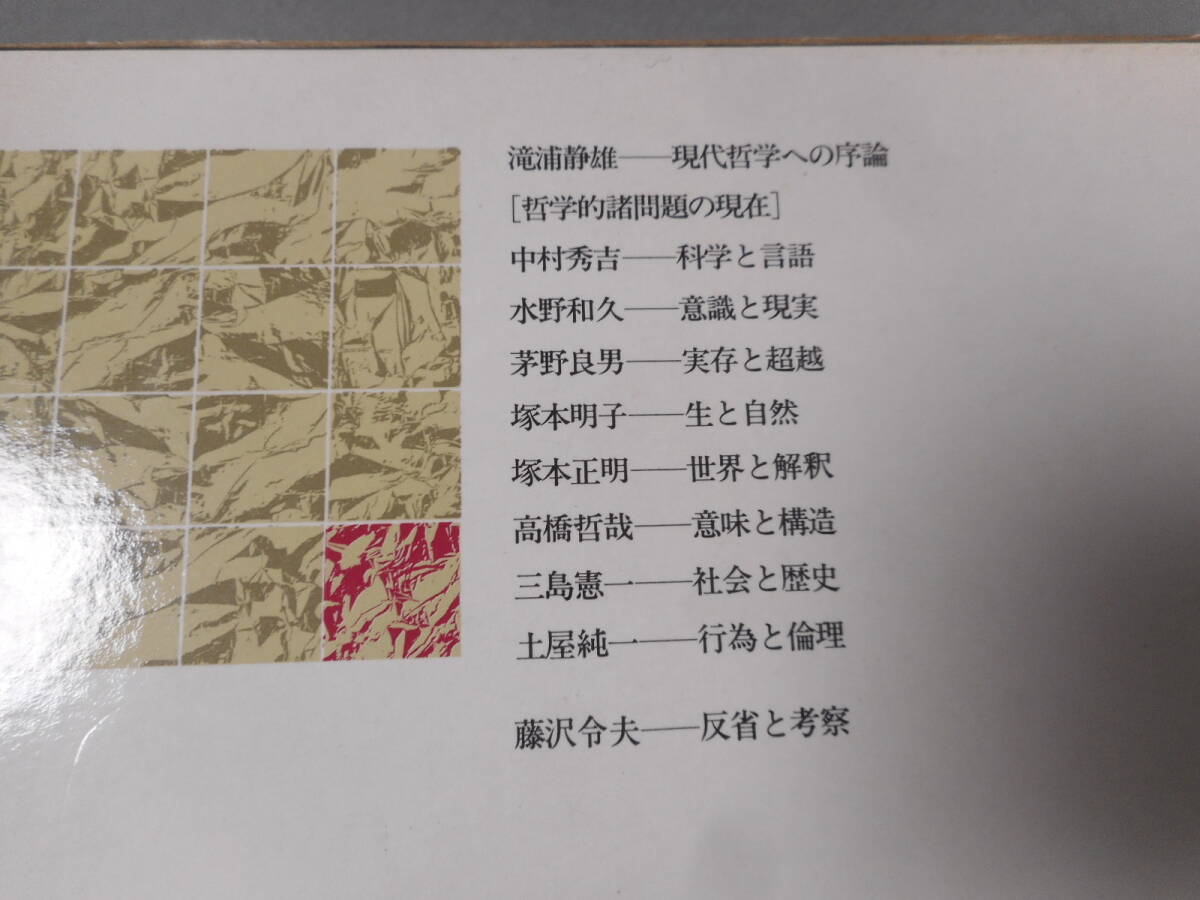 滝浦静雄――現代哲学への序論
[哲学的諸問題の現在]
中村秀吉――科学と言語
水野和久――意識と現実
茅野良男――実存と超越
塚本明子――生と自然
塚本正明――世界と解釈
高橋哲哉――意味と構造
三島憲一――社会と歴史
土屋純一――行為と倫理
藤沢令夫――反省と考察